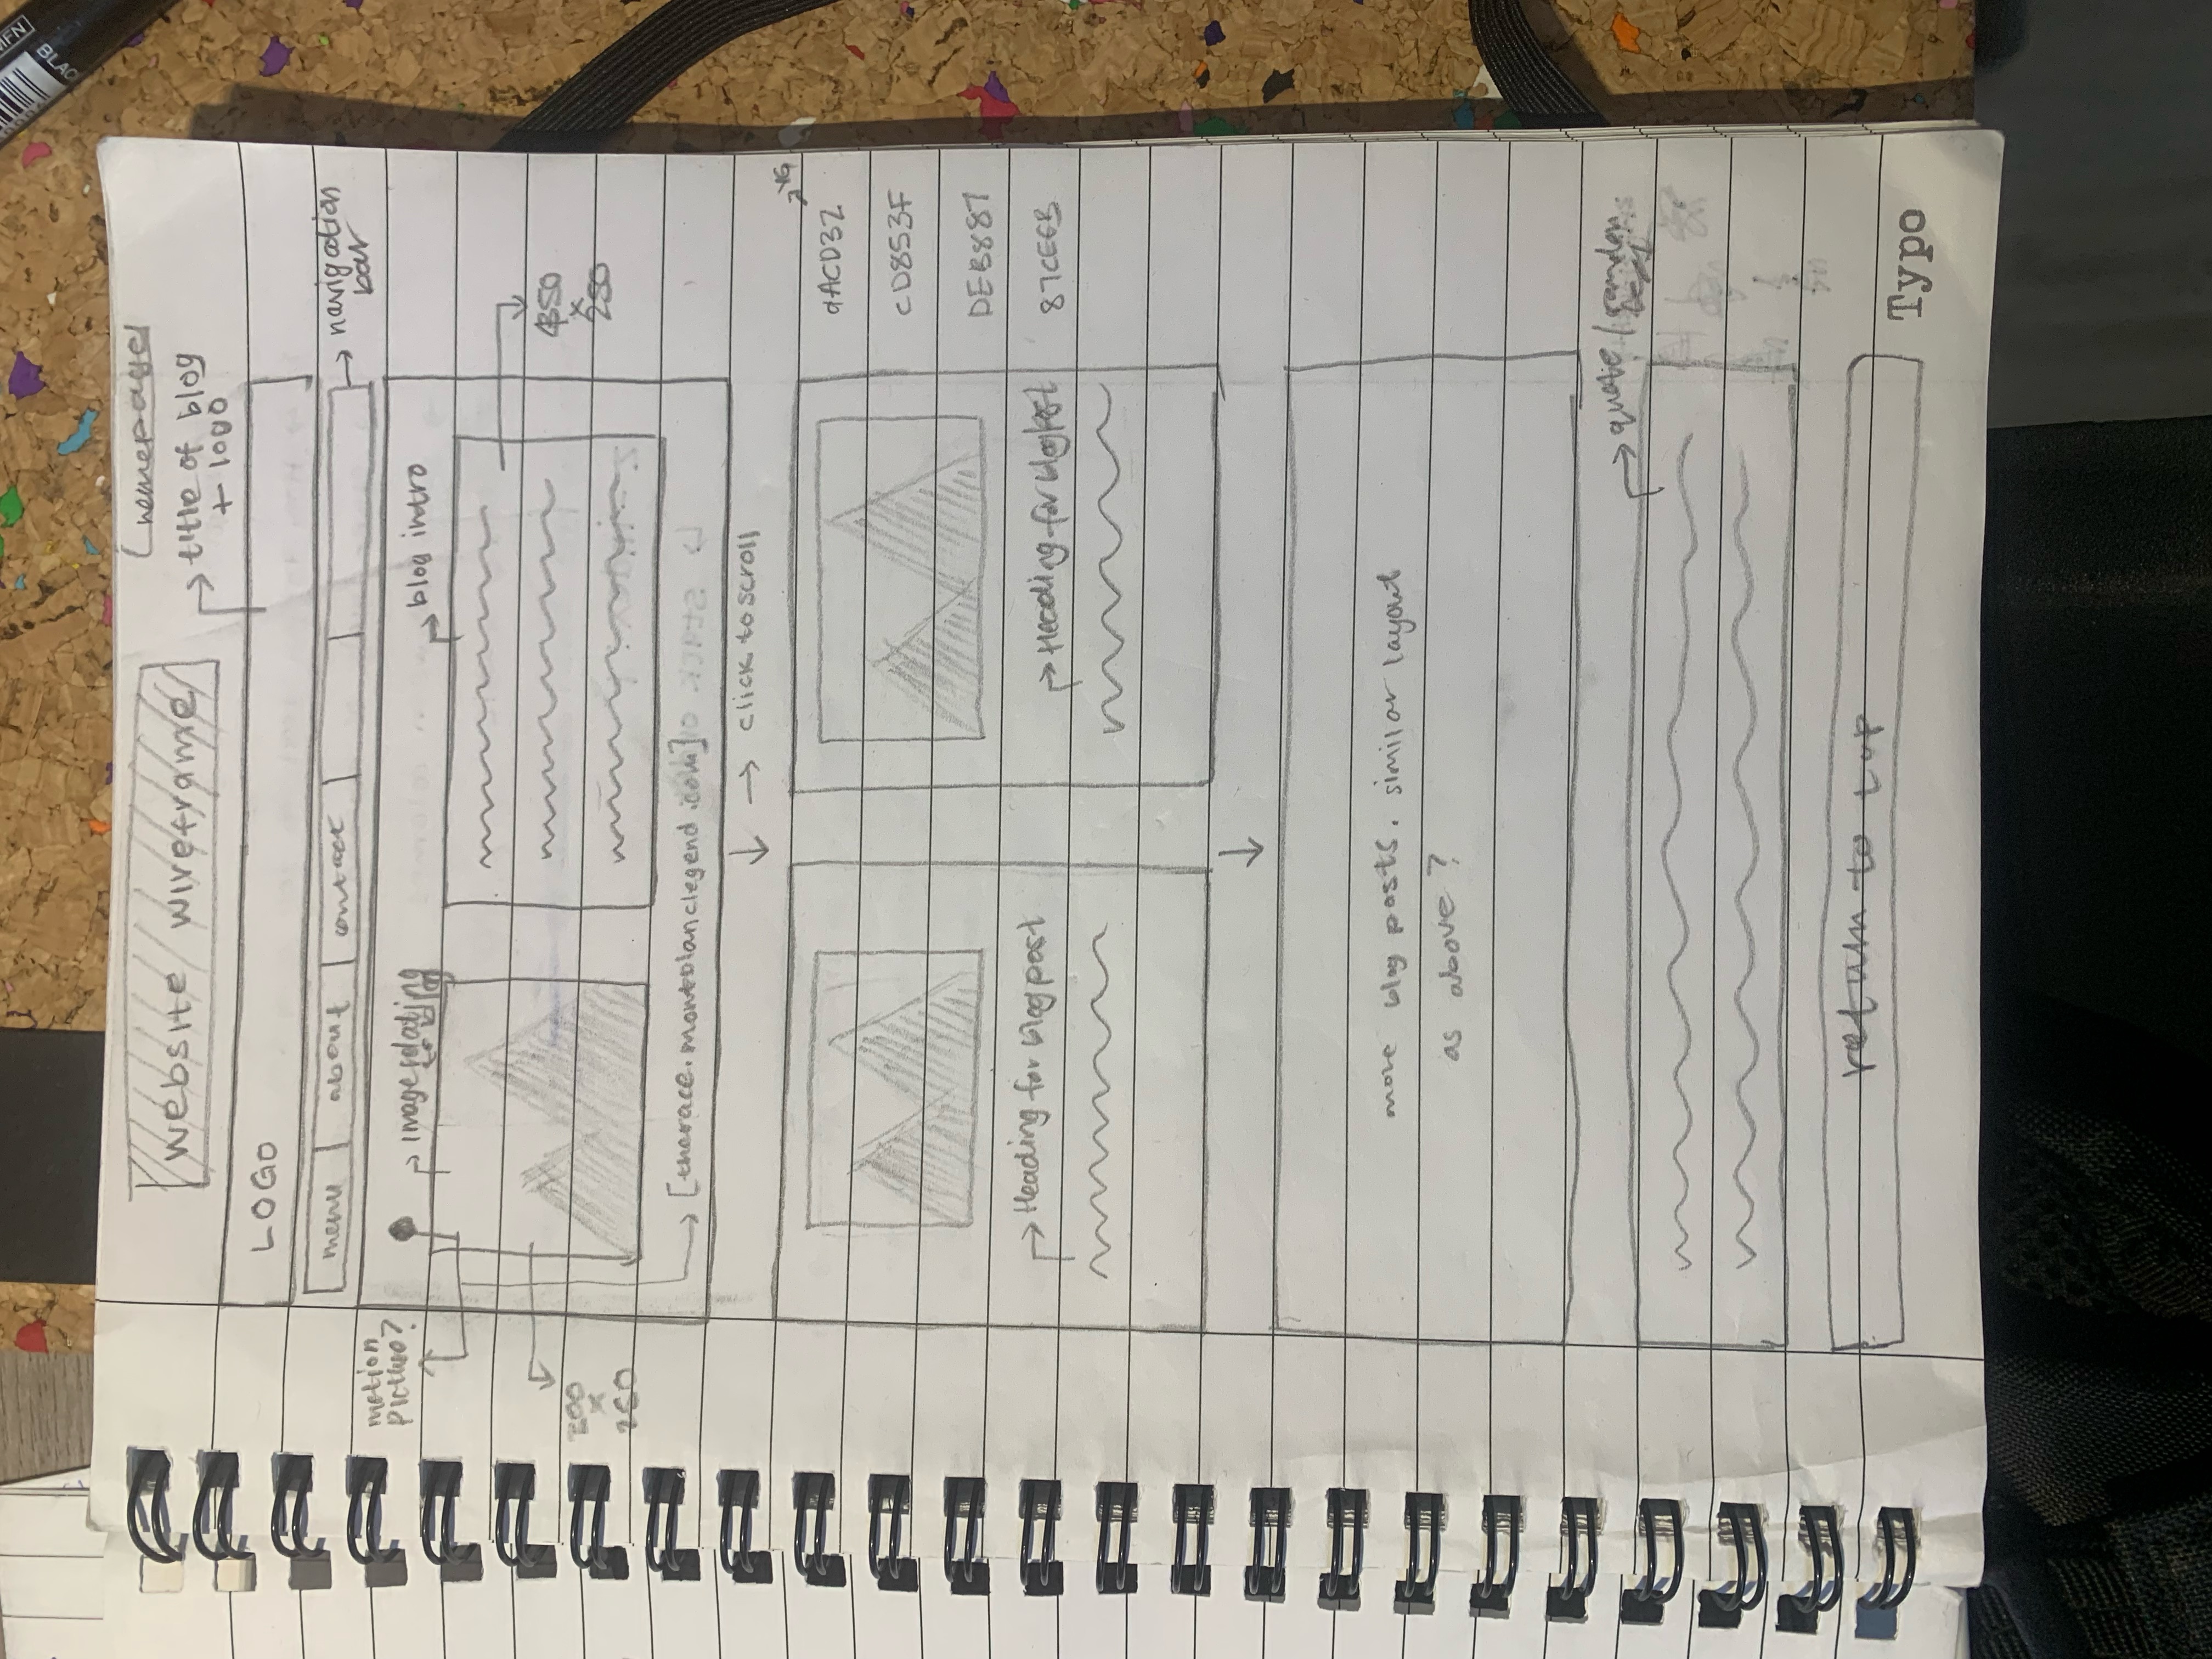 website wireframe
(homepage)
title of blog
+ logo
LOGO
menu about contact
navigation
bar
motion
picture?
image relating
to blog
blog intro
200
x
250
350
x
250
[therace.montblanclegend.com]
click to scroll
YG
9ACD32
CD853F
DEB887
87CEEB
Heading for blog post
Heading for blog post
more blog posts. similar layout
as above?
quote / random
return to top
Typo